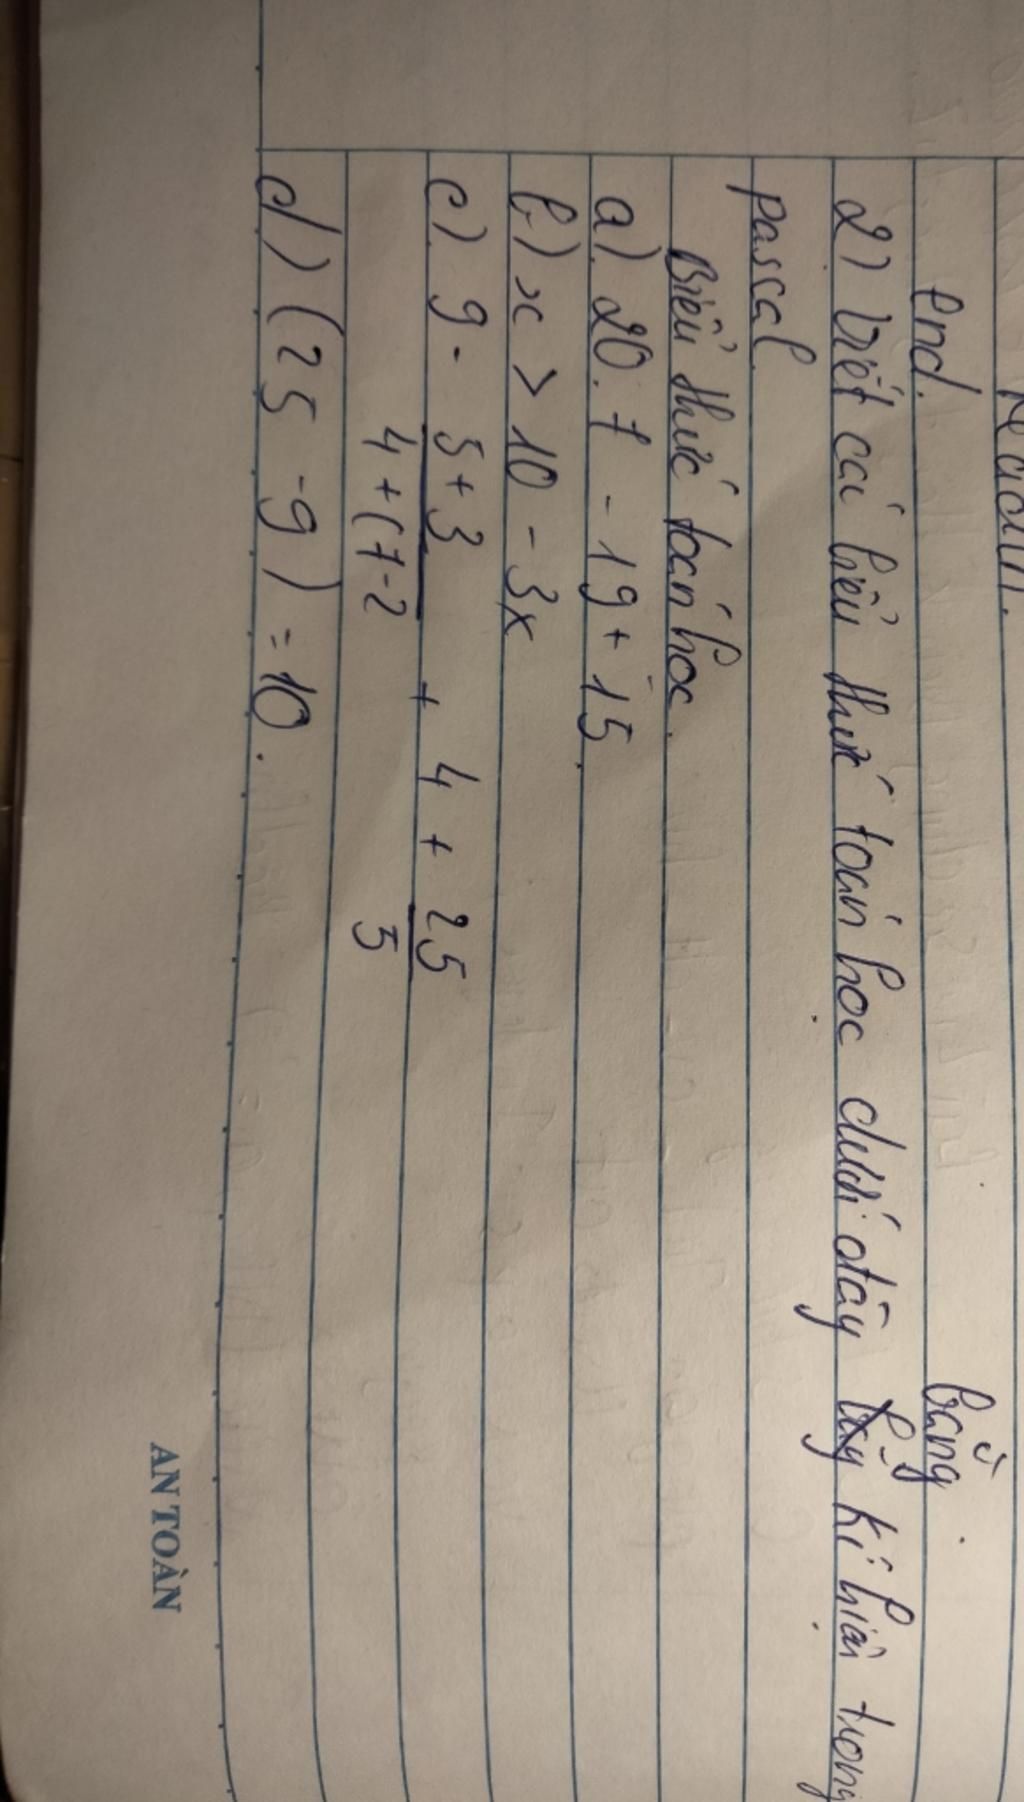 Readln.
end.
bằng
2) Viết các biểu thức toán học dưới đây kí hiệu trong
pascal
Biểu thức toán học.
a) 20.7 - 19 + 15.
b) x > 10 - 3x
c) 9 - 5+3 + 4 + 25
4+(7-2 5
d) (25 - 9) = 10.
AN TOÀN